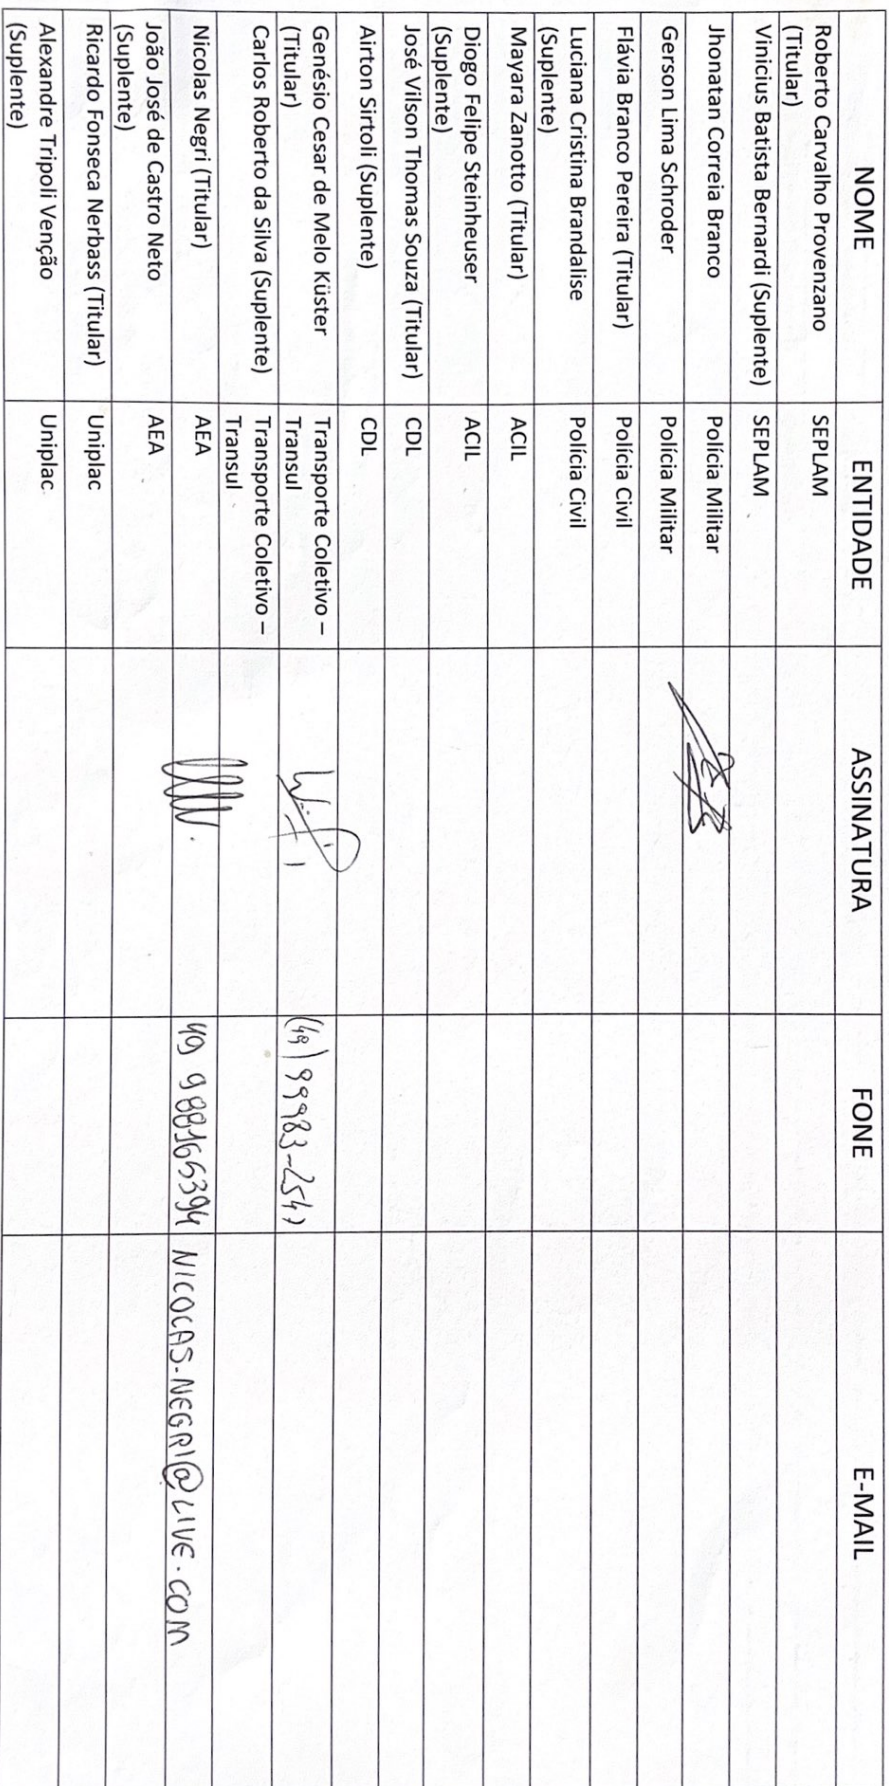 NOME ENTIDADE ASSINATURA FONE E-MAIL
Roberto Carvalho Provenzano SEPLAM
(Titular)
Vinicius Batista Bernardi (Suplente) SEPLAM
Jhonatan Correia Branco Polícia Militar
Gerson Lima Schroder Polícia Militar
Flávia Branco Pereira (Titular) Polícia Civil
Luciana Cristina Brandalise Polícia Civil
(Suplente)
Mayara Zanotto (Titular) ACIL
Diogo Felipe Steinheuser ACIL
(Suplente)
José Vilson Thomas Souza (Titular) CDL
Airton Sirtoli (Suplente) CDL
Genésio Cesar de Melo Küster Transporte Coletivo –
(Titular) Transul (49) 99983-2547
Carlos Roberto da Silva (Suplente) Transporte Coletivo –
Transul
Nicolas Negri (Titular) AEA 49 988165394 NICOLAS.NEGRI@LIVE.COM
João José de Castro Neto AEA
(Suplente)
Ricardo Fonseca Nerbass (Titular) Uniplac
Alexandre Tripoli Venção Uniplac
(Suplente)